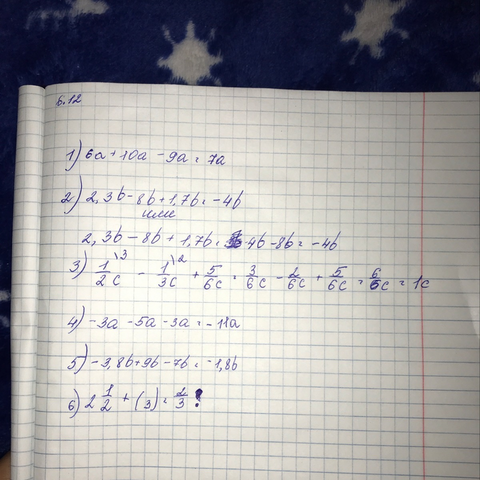 6.12
1) 6a + 10a - 9a = 7a
2) 2,3b - 8b + 1,7b = -4b
или
2,3b - 8b + 1,7b = 4b - 8b = -4b
3) 1/2 c \3 - 1/3 c \2 + 5/6 c = 3/6 c - 2/6 c + 5/6 c = 6/6 c = 1c
4) -3a - 5a - 3a = -11a
5) -3,8b + 9b - 7b = -1,8b
6) 2 1/2 + (3) = 2/3